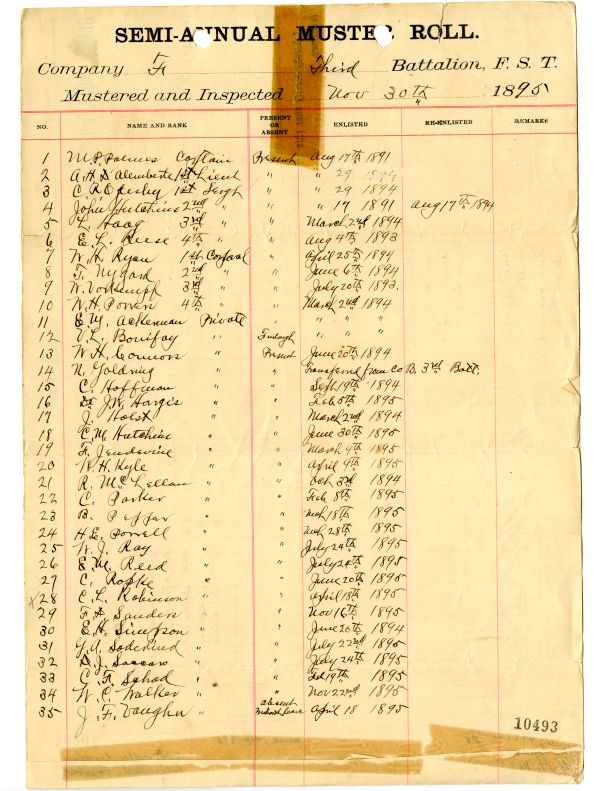 SEMI-ANNUAL MUSTER ROLL.
Company F Third Battalion, F. S. T.
Mustered and Inspected Nov 30th 1895
NO. NAME AND RANK PRESENT OR ABSENT ENLISTED RE-ENLISTED REMARKS
1 Captain Present Aug 17th 1891
2 A. H. D'Alemberte 1st Lieut " " 29 1894
3 1st Sergt " " 29 1894
4 John Hutchins 2nd " " " 17 1891 Aug 17th 1894
5 L. Haag 3rd " " March 2nd 1894
6 E. L. Reese 4th " " Aug 4th 1893
7 W. H. Ryan 1st Corporal " April 25th 1894
8 T. Nygard 2nd " " June 6th 1894
9 3rd " " July 20th 1893
10 W. H. Powers 4th " " March 2nd 1894
11 Ackerman Private " " " "
12 V. L. Bonifay " Furlough " " "
13 W. H. Connors " Present June 20th 1894
14 N. Goldring " " Transferred from Co B. 3rd Batt.
15 C. Hoffman " " Sept 19th 1894
16 J. W. Hargis " " Feb 5th 1895
17 J. Holst " " March 2nd 1894
18 C. M. Hutchins " " June 30th 1895
19 F. " " March 9th 1895
20 W. H. Kyle " " April 9th 1895
21 R. McLellan " " Oct 3rd 1894
22 C. Parker " " Feb 8th 1895
23 B. Peffer " " Mch 18th 1895
24 H. E. Powell " " Mch 28th 1895
25 W. J. Ray " " July 24th 1895
26 E. M. Reed " " July 24th 1895
27 C. " " June 20th 1895
x 28 C. L. Robinson " " April 18th 1895
29 Sanders " " Nov 16th 1895
30 E. H. Simpson " " June 26th 1894
31 " " July 22nd 1895
32 " " July 24th 1895
33 C. F. Schad " " Feb 19th 1895
34 W. C. Walker " " Nov 22nd 1895
35 J. F. Vaughn " absent without leave April 18 1895
10493